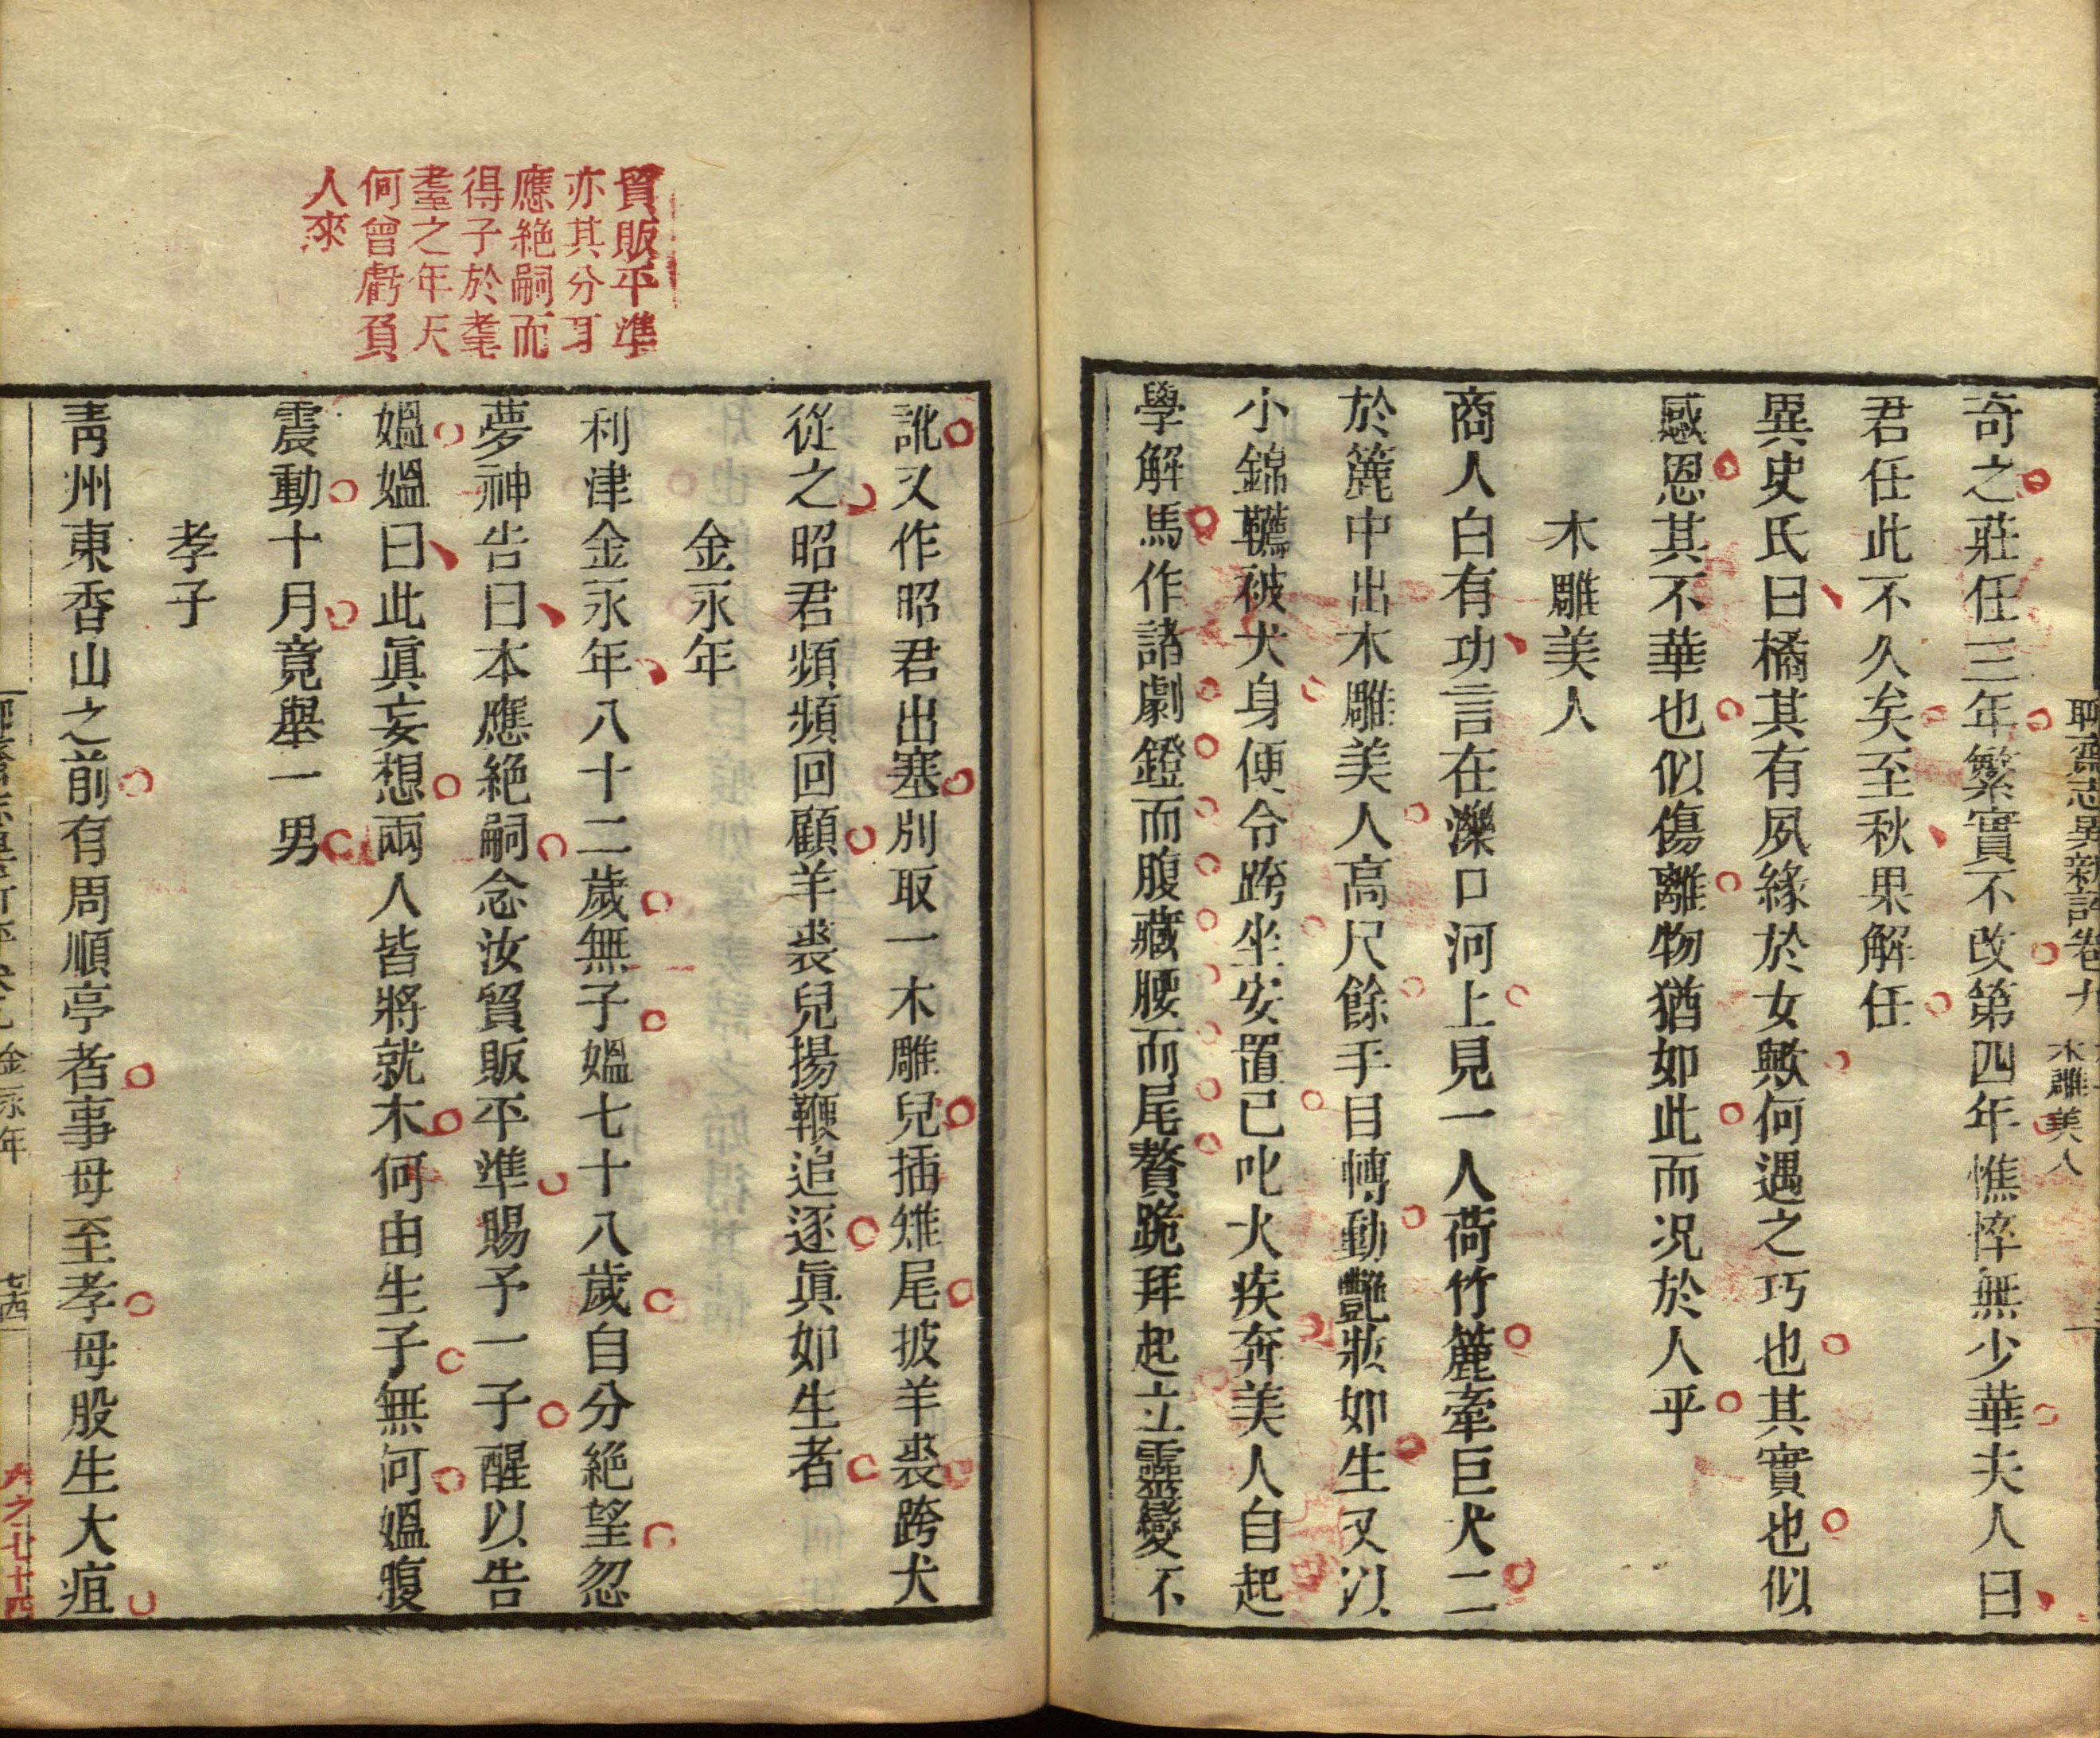 聊齋志異新評卷九 木雕美人
奇之莊任三年繁實不改第四年憔悴無少華夫人曰
君任此不久矣至秋果解任
異史氏曰橘其有夙緣於女歟何遇之巧也其實也似
感恩其不華也似傷離物猶如此而况於人乎
木雕美人
商人白有功言在濼口河上見一人荷竹簏牽巨犬二
於簏中出木雕美人高尺餘手目轉動艷妝如生又以
小錦韉被犬身便令跨坐安置已叱犬疾奔美人自起
學解馬作諸劇鐙而腹藏腰而尾贅跪拜起立靈變不
訛又作昭君出塞別取一木雕兒插雉尾披羊裘跨犬
從之昭君頻頻回顧羊裘兒揚鞭追逐眞如生者
貿販平準
亦其分耳
應絶嗣而
得子於耄
耋之年天
何曾虧負
人來
金永年
利津金永年八十二歲無子媼七十八歲自分絶望忽
夢神告曰本應絶嗣念汝貿販平準賜予一子醒以告
媼媼曰此眞妄想兩人皆將就木何由生子無何媼腹
震動十月竟舉一男
孝子
靑州東香山之前有周順亭者事母至孝母股生大疽
金永年 七四
九之七十四